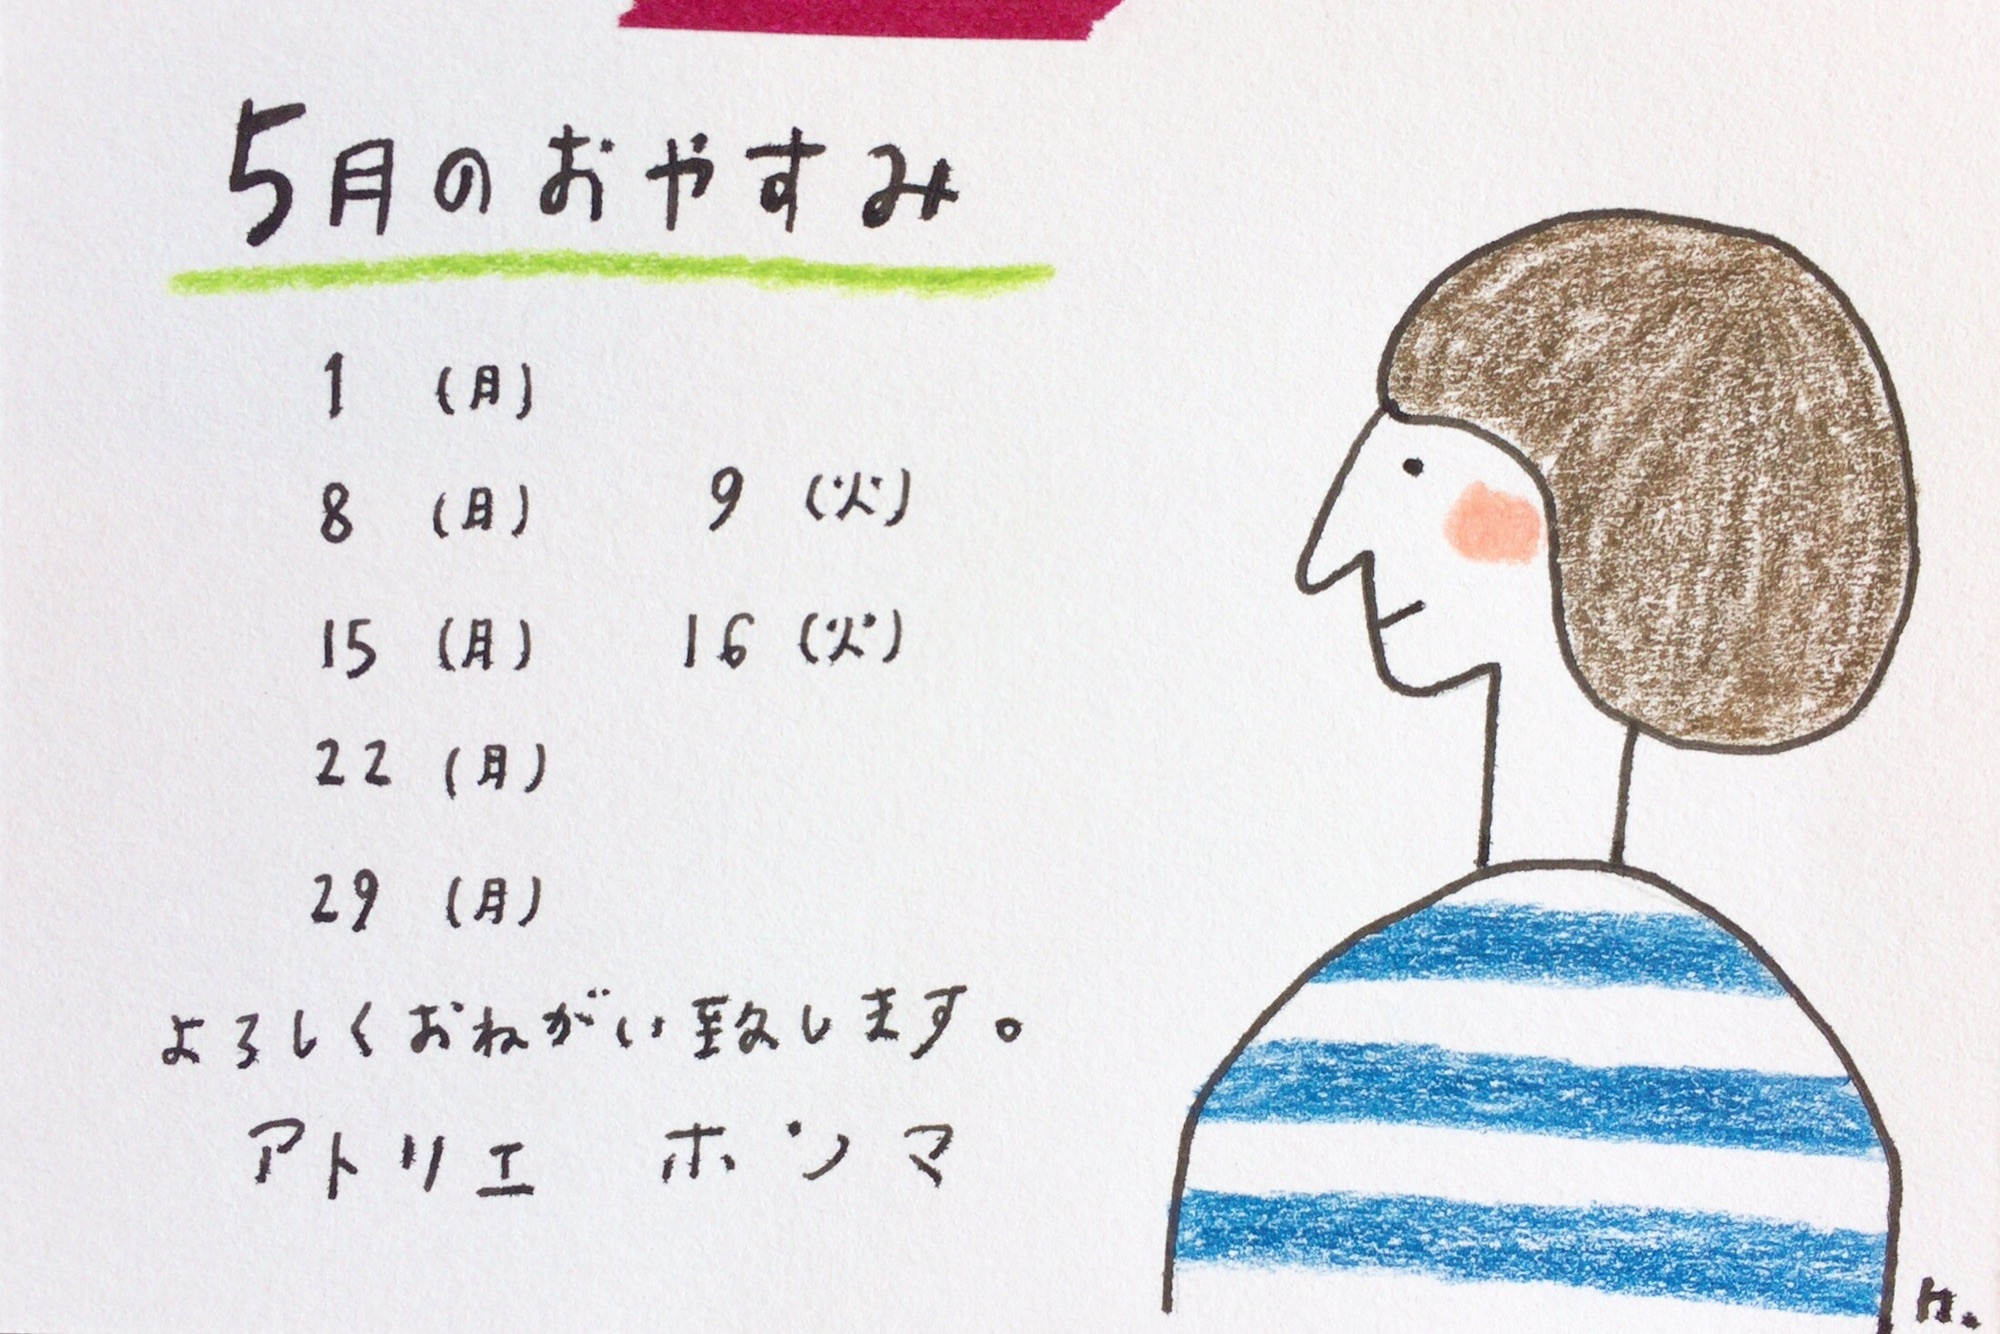 5月のおやすみ
1 (月)
8 (月) 9 (火)
15 (月) 16 (火)
22 (月)
29 (月)
よろしくおねがい致します。
アトリエ ホンマ
n.